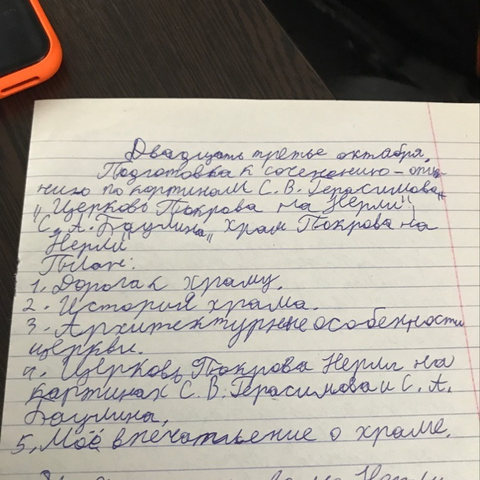 Двадцать третье октября.
Подготовка к соченению-опи-
нию по картинам С. В. Герасимова
"Церковь Покрова на Нерли",
С. А. Баулина "Храм Покрова на
Нерли"
План:
1. Дорога к храму.
2. История храма.
3. Архитектурные особенности
церкви.
4. Церковь Покрова Нерли на
картинах С. В. Герасимова и С. А.
Баулина.
5. Моё впечатление о храме.